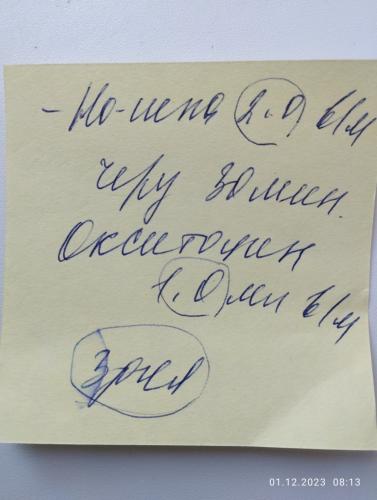 - Но-шпа 2.0 в/м
через 30 мин.
Окситоцин
1.0 мл в/м
3 дня
01.12.2023 08:13